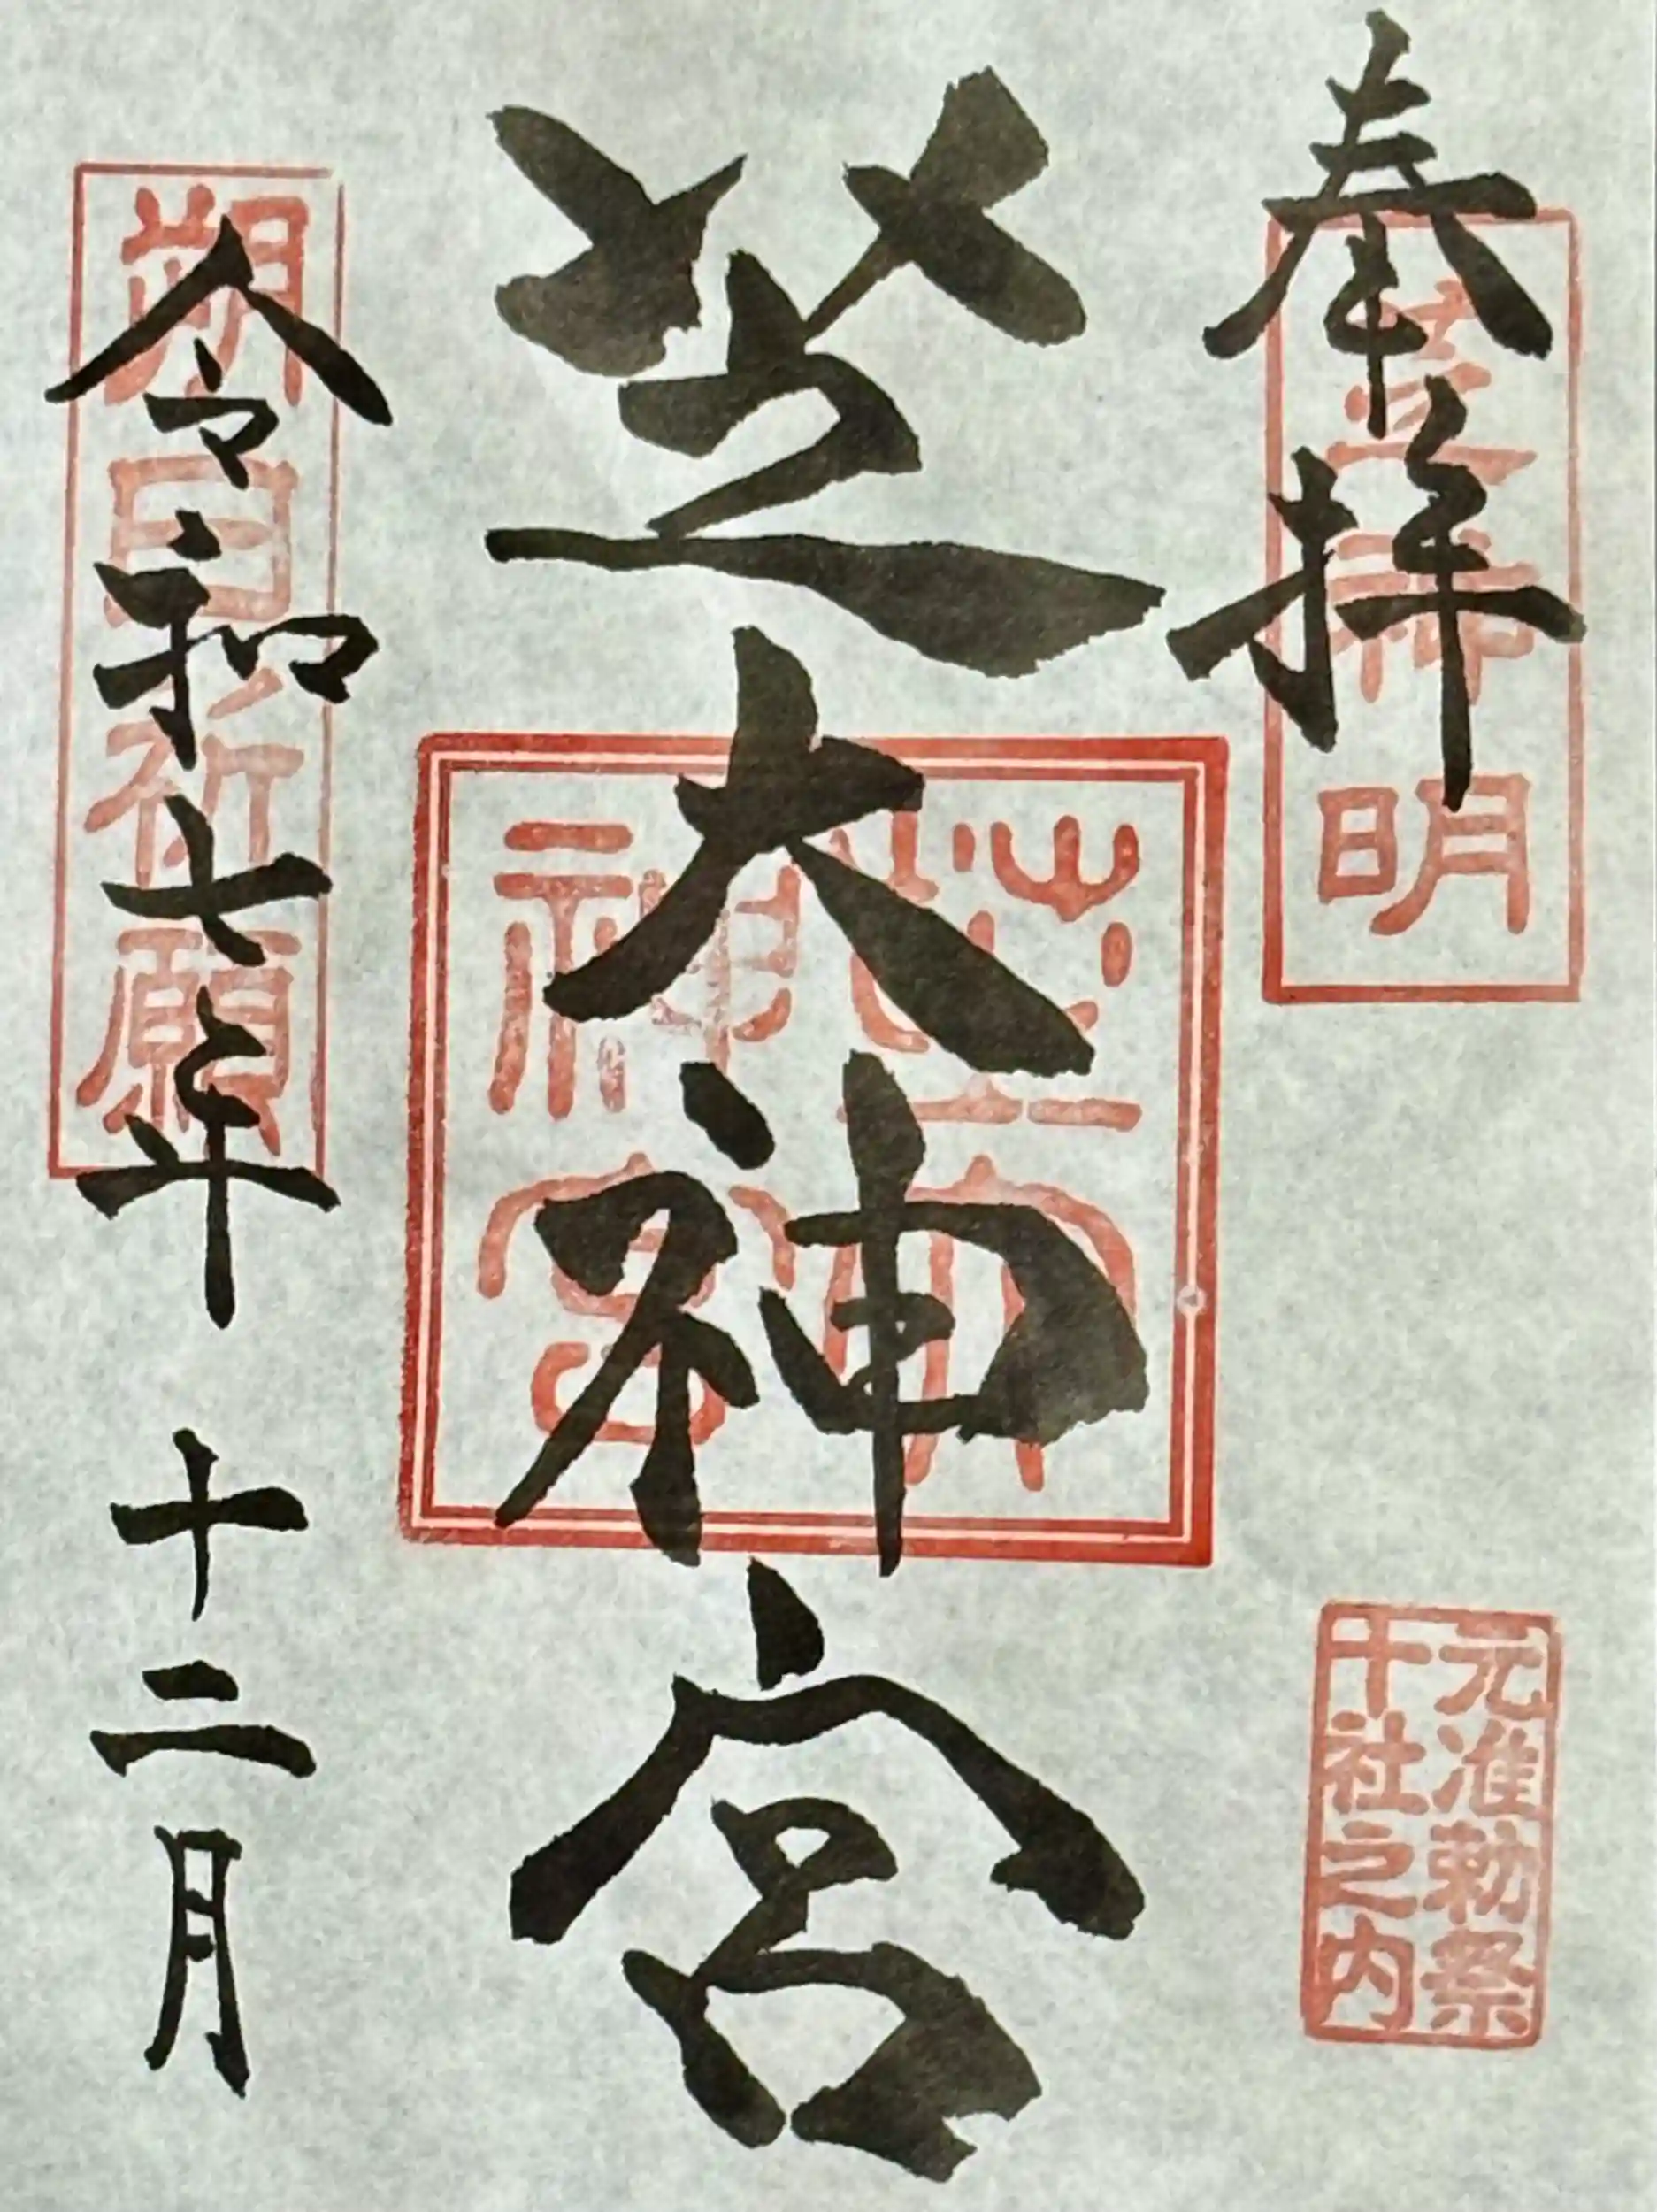 奉拝
芝神明
元准勅祭
十社之内
芝大神宮
芝大
神宮
令和七年 十二月
朔日祈願